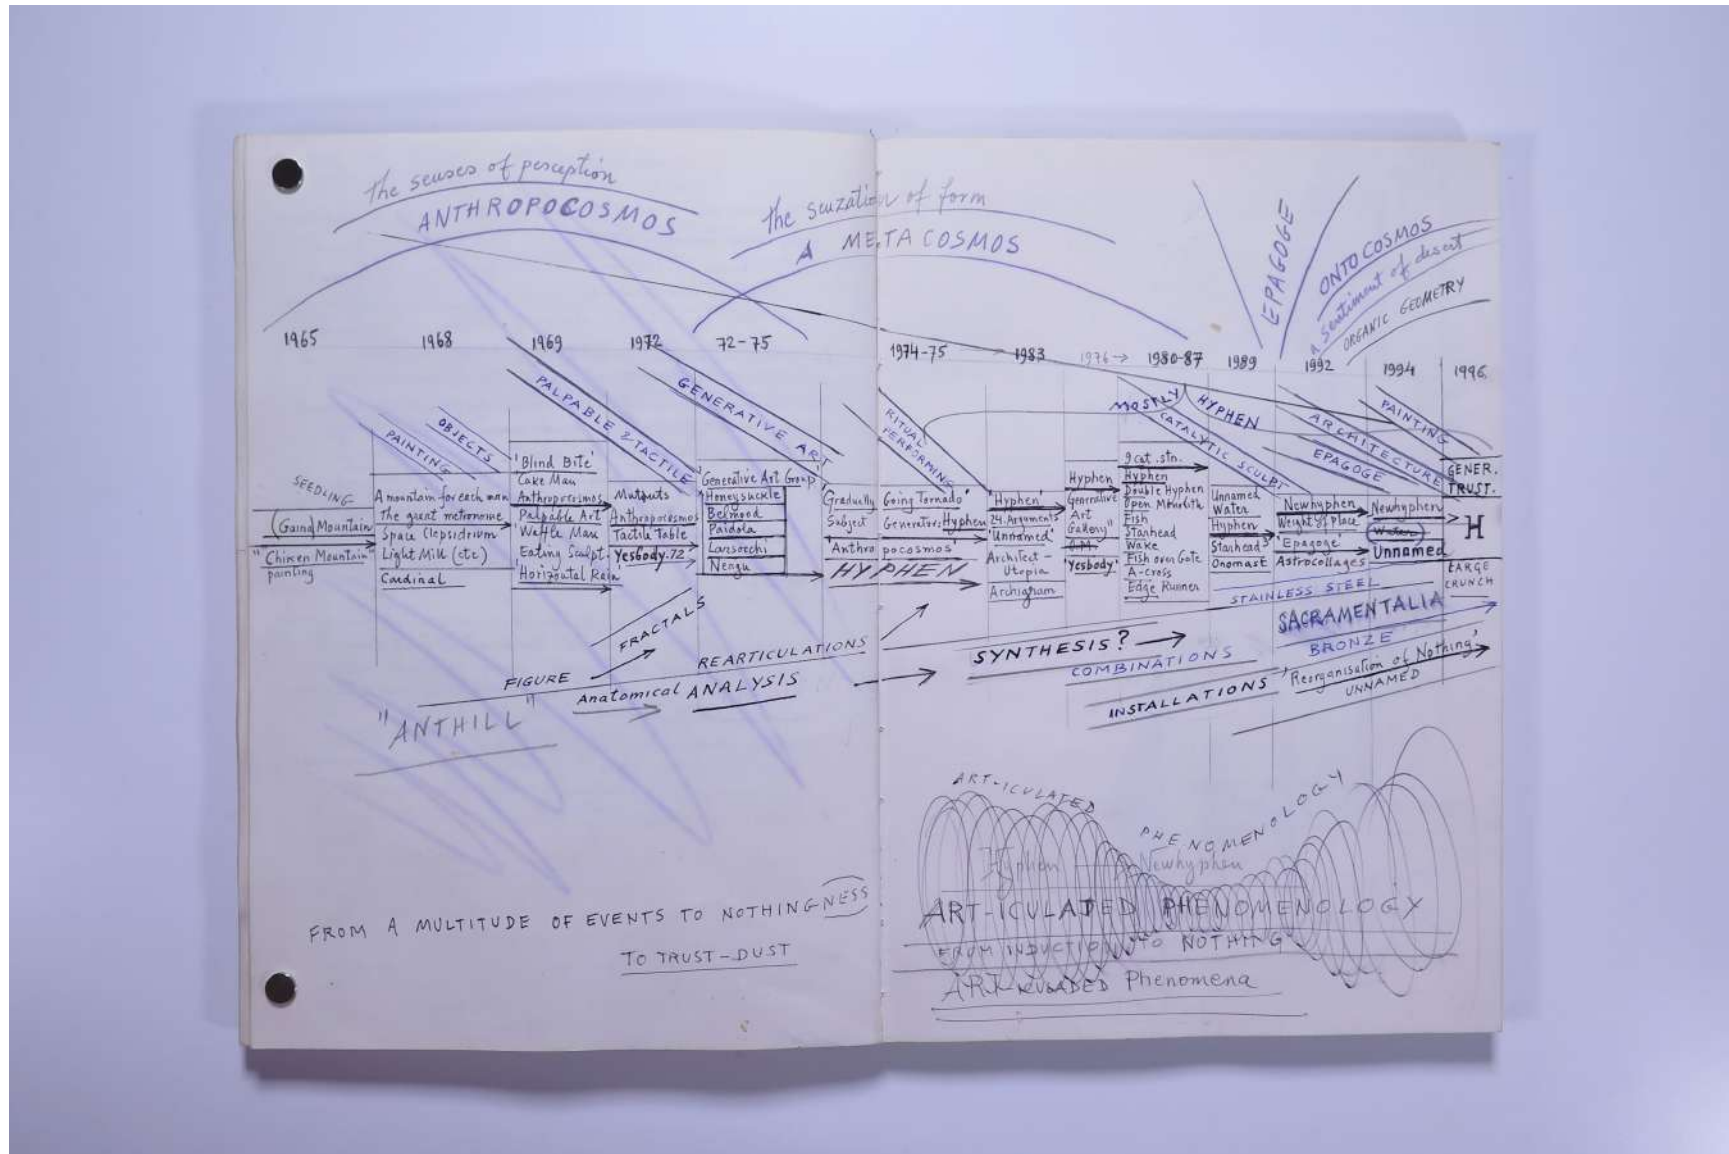 the senses of perception
ANTHROPOCOSMOS
the senzation of form
A METACOSMOS
EPAGOGE
ONTOCOSMOS
a Sentiment of desert
ORGANIC GEOMETRY
1965
1968
1969
1972
72-75
1974-75
1983
1976 →
1980-87
1989
1992
1994
1996
PAINTING
OBJECTS
PALPABLE & TACTILE
GENERATIVE ART
RITUAL
PERFORMING
MOSTLY HYPHEN
CATALYTIC SCULPT
ARCHITECTURE
EPAGOGE
PAINTING
SEEDLING
Mountain
painting
A mountain for each man
The great metronome
Space Clepsidrium
Light Milk (etc)
Cardinal
'Blind Bite'
Cake Man
Anthropocosmos
Palpable Art
Waffle Man
Eating Sculpt.
'Horizontal Rain
Anthropocosmos
Tactile Table
Yesbody.72
Generative Art Group'
Honeysuckle
Belmood
Paidola
Nengu
'Gradually
Subject
'Anthro
Going Tornado'
Generator: Hyphen
pocosmos'
HYPHEN
'Hyphen'
24 Arguments
'Unnamed'
Architect-
Utopia
Archigram
Hyphen
Generative
Art
Gallery"
'Yesbody'
9 cat. stn.
Hyphen
Double Hyphen
Open Monolith
Fish
Stairhead
Wake
Fish over Gate
A-cross
Edge Runner
Unnamed
Water
Hyphen
Stairhead
Onomast
Newhyphen
Weight of place
'Epagoge'
Astrocollages
Newhyphen
Water
Unnamed
GENER.
TRUST.
H
LARGE
CRUNCH
STAINLESS STEEL
SACRAMENTALIA
BRONZE
FRACTALS
FIGURE
REARTICULATIONS
Anatomical ANALYSIS
SYNTHESIS?
COMBINATIONS
INSTALLATIONS
'Reorganisation of Nothing'
UNNAMED
"ANTHILL"
FROM A MULTITUDE OF EVENTS TO NOTHINGNESS
TO TRUST-DUST
ART-ICULATED PHENOMENOLOGY
Hyphen Newhyphen
ART-ICULATED PHENOMENOLOGY
FROM INDUCTION TO NOTHING
Phenomena